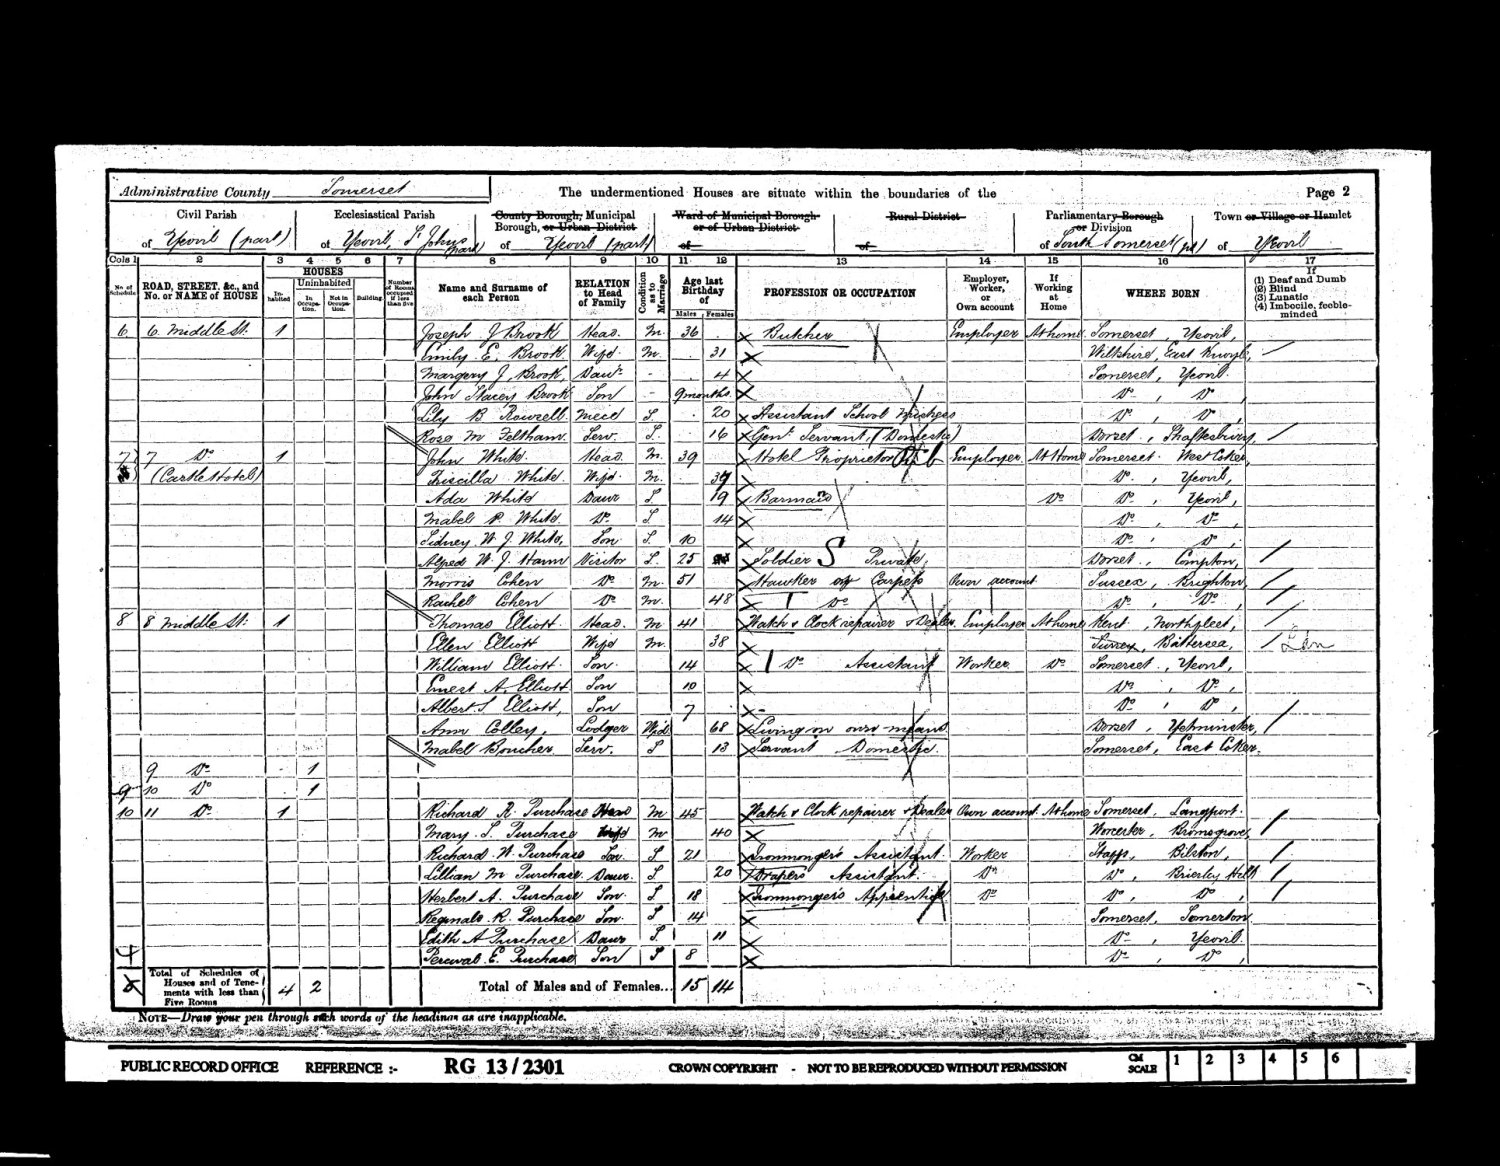 Administrative County Somerset The undermentioned Houses are situate within the boundaries of the Page 2
Civil Parish Ecclesiastical Parish County Borough, Municipal Borough, or Urban District Ward of Municipal Borough or of Urban District Rural District Parliamentary Borough or Division Town or Village or Hamlet
of Yeovil (part) of Yeovil, St Johns (part) of Yeovil (part) of of of South Somerset (pt) of Yeovil
Cols 1 2 3 4 5 6 7 8 9 10 11 12 13 14 15 16 17
No. of Schedule ROAD, STREET, &c., and No. or NAME of HOUSE HOUSES Inhabited Uninhabited In Occupation. Not in Occupation. Building Number of Rooms occupied if less than five Name and Surname of each Person RELATION to Head of Family Condition as to Marriage Age last Birthday of Males Females PROFESSION OR OCCUPATION Employer, Worker, or Own account If Working at Home WHERE BORN If (1) Deaf and Dumb (2) Blind (3) Lunatic (4) Imbecile, feeble-minded
6 6 Middle St. 1 Joseph J Brook Head M 36 Butcher Employer At home Somerset, Yeovil,
Emily E. Brook Wife M. 31 Wiltshire, East Knoyle,
Margery J. Brook, Daur - 4 Somerset, Yeovil
John Stacey Brook Son - 9 months Do, Do,
Lily B Niece S 20 Assistant School Mistress Do, Do,
Rose M Feltham Serv. S. 16 Genl Servant, (Domestic) Dorset, Shaftesbury,
7 7 Do 1 John White Head M. 39 Hotel Proprietor Employer At Home Somerset West Coker,
(Castle Hotel) Priscilla White Wife M. 37 Do, Yeovil,
Ada White Daur S 19 Barmaid Do Do, Yeovil,
Mabel P. White Do S. 14 Do, Do
Sidney W. J. White, Son S. 10 Do, Do,
Alfred W. J. Hann Visitor S. 25 Soldier S Private Dorset, Compton,
Morris Cohen Do M. 51 Hawker of Carpets Own account Sussex, Brighton,
Rachel Cohen Do M. 48 Do Do, Do,
8 8 Middle St. 1 Thomas Elliott Head M 41 Watch & Clock repairer & Dealer Employer At home Kent, Northfleet,
Ellen Elliott Wife M. 38 Surrey, Battersea, Ldn
William Elliott Son 14 Do Assistant Worker Do Somerset, Yeovil,
Ernest A. Elliott Son 10 Do, Do,
Albert S Elliott, Son 7 Do, Do,
Ann Colley, Lodger Wid 68 Living on own means Dorset, Yetminster,
Mabel Boucher Serv. S 13 Servant Domestic Somerset, East Coker.
9 Do 1
9 10 Do 1
10 11 Do 1 Richard R. Purchase Head M 45 Watch & Clock repairer & Dealer Own account At home Somerset, Langport
Mary S. Purchase Wife M 40 Worcester, Bromsgrove,
Richard W. Purchase Son S 21 Ironmonger's Assistant Worker Staffs, Bilston,
Lillian M Purchase Daur. S 20 Drapers Assistant Do Do, Brierley Hill
Herbert A. Purchase Son S 18 Ironmonger's Apprentice Do Do, Do,
Reginald R. Purchase Son S 14 Somerset, Somerton
Edith A Purchase Daur S. 11 Do, Yeovil
Percival E. Purchase Son S 8 Do, Do,
4
Total of Schedules of Houses and of Tenements with less than Five Rooms 4 2 Total of Males and of Females... 15 14
NOTE—Draw your pen through such words of the headings as are inapplicable.
PUBLIC RECORD OFFICE REFERENCE :- RG 13/2301 CROWN COPYRIGHT - NOT TO BE REPRODUCED WITHOUT PERMISSION CM SCALE 1 2 3 4 5 6